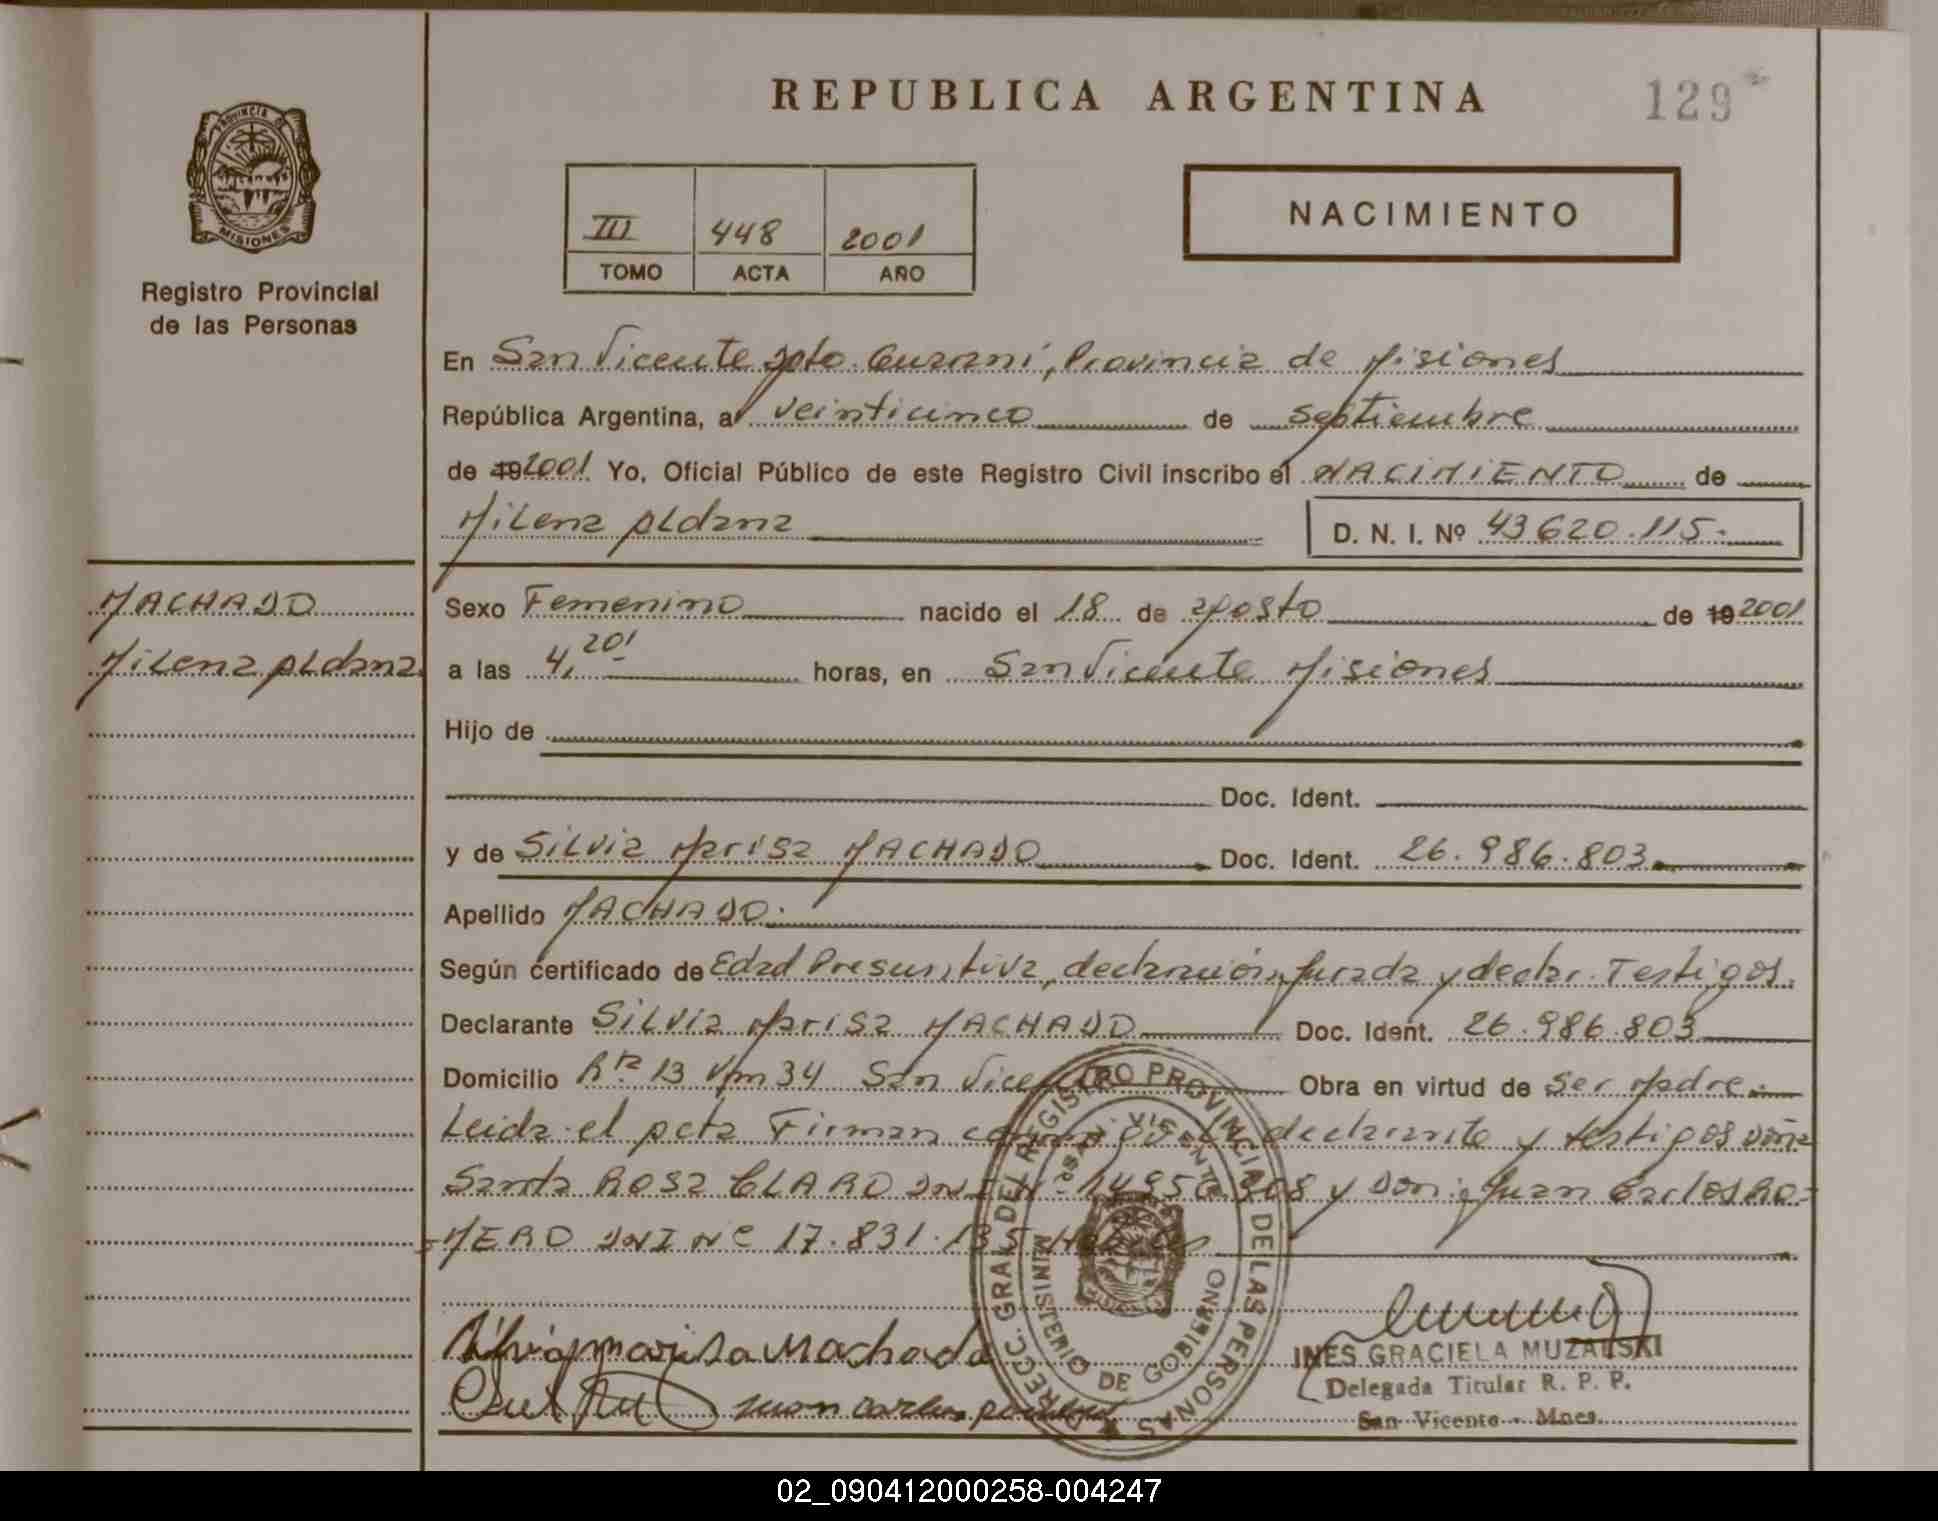 REPUBLICA ARGENTINA
129
PROVINCIA DE
MISIONES
Registro Provincial
de las Personas
III 448 2001
TOMO ACTA AÑO
NACIMIENTO
En San Vicente Dpto. Guaraní, Provincia de Misiones
República Argentina, a veinticinco de septiembre
de 19 2001 Yo, Oficial Público de este Registro Civil inscribo el NACIMIENTO de
Milena Aldana
D. N. I. Nº 43620.115.-
MACHADO
Milena Aldana
Sexo Femenino nacido el 18 de agosto de 19 2001
a las 4,20' horas, en San Vicente Misiones
Hijo de
Doc. Ident.
y de Silvia Marisa MACHADO Doc. Ident. 26.986.803
Apellido MACHADO.
Según certificado de Edad Presuntiva, declaración jurada y declar. Testigos.
Declarante Silvia Marisa MACHADO Doc. Ident. 26.986.803
Domicilio Rta 13 Km 34 San Vicente Obra en virtud de ser Madre.-
Leida el acta Firman la declarante y testigos Doña
Santa Rosa CLARO DNI Nº y Don: Juan Carlos RO=
=MERO DNI Nº 17.831.135
Silvia marisa Machado
Juan carlos
DIRECC. GRAL. DEL REGISTRO PROVINCIAL DE LAS PERSONAS
SAN VICENTE
MINISTERIO DE GOBIERNO
INES GRACIELA MUZALSKI
Delegada Titular R. P. P.
San Vicente - Mnes.
02_090412000258-004247